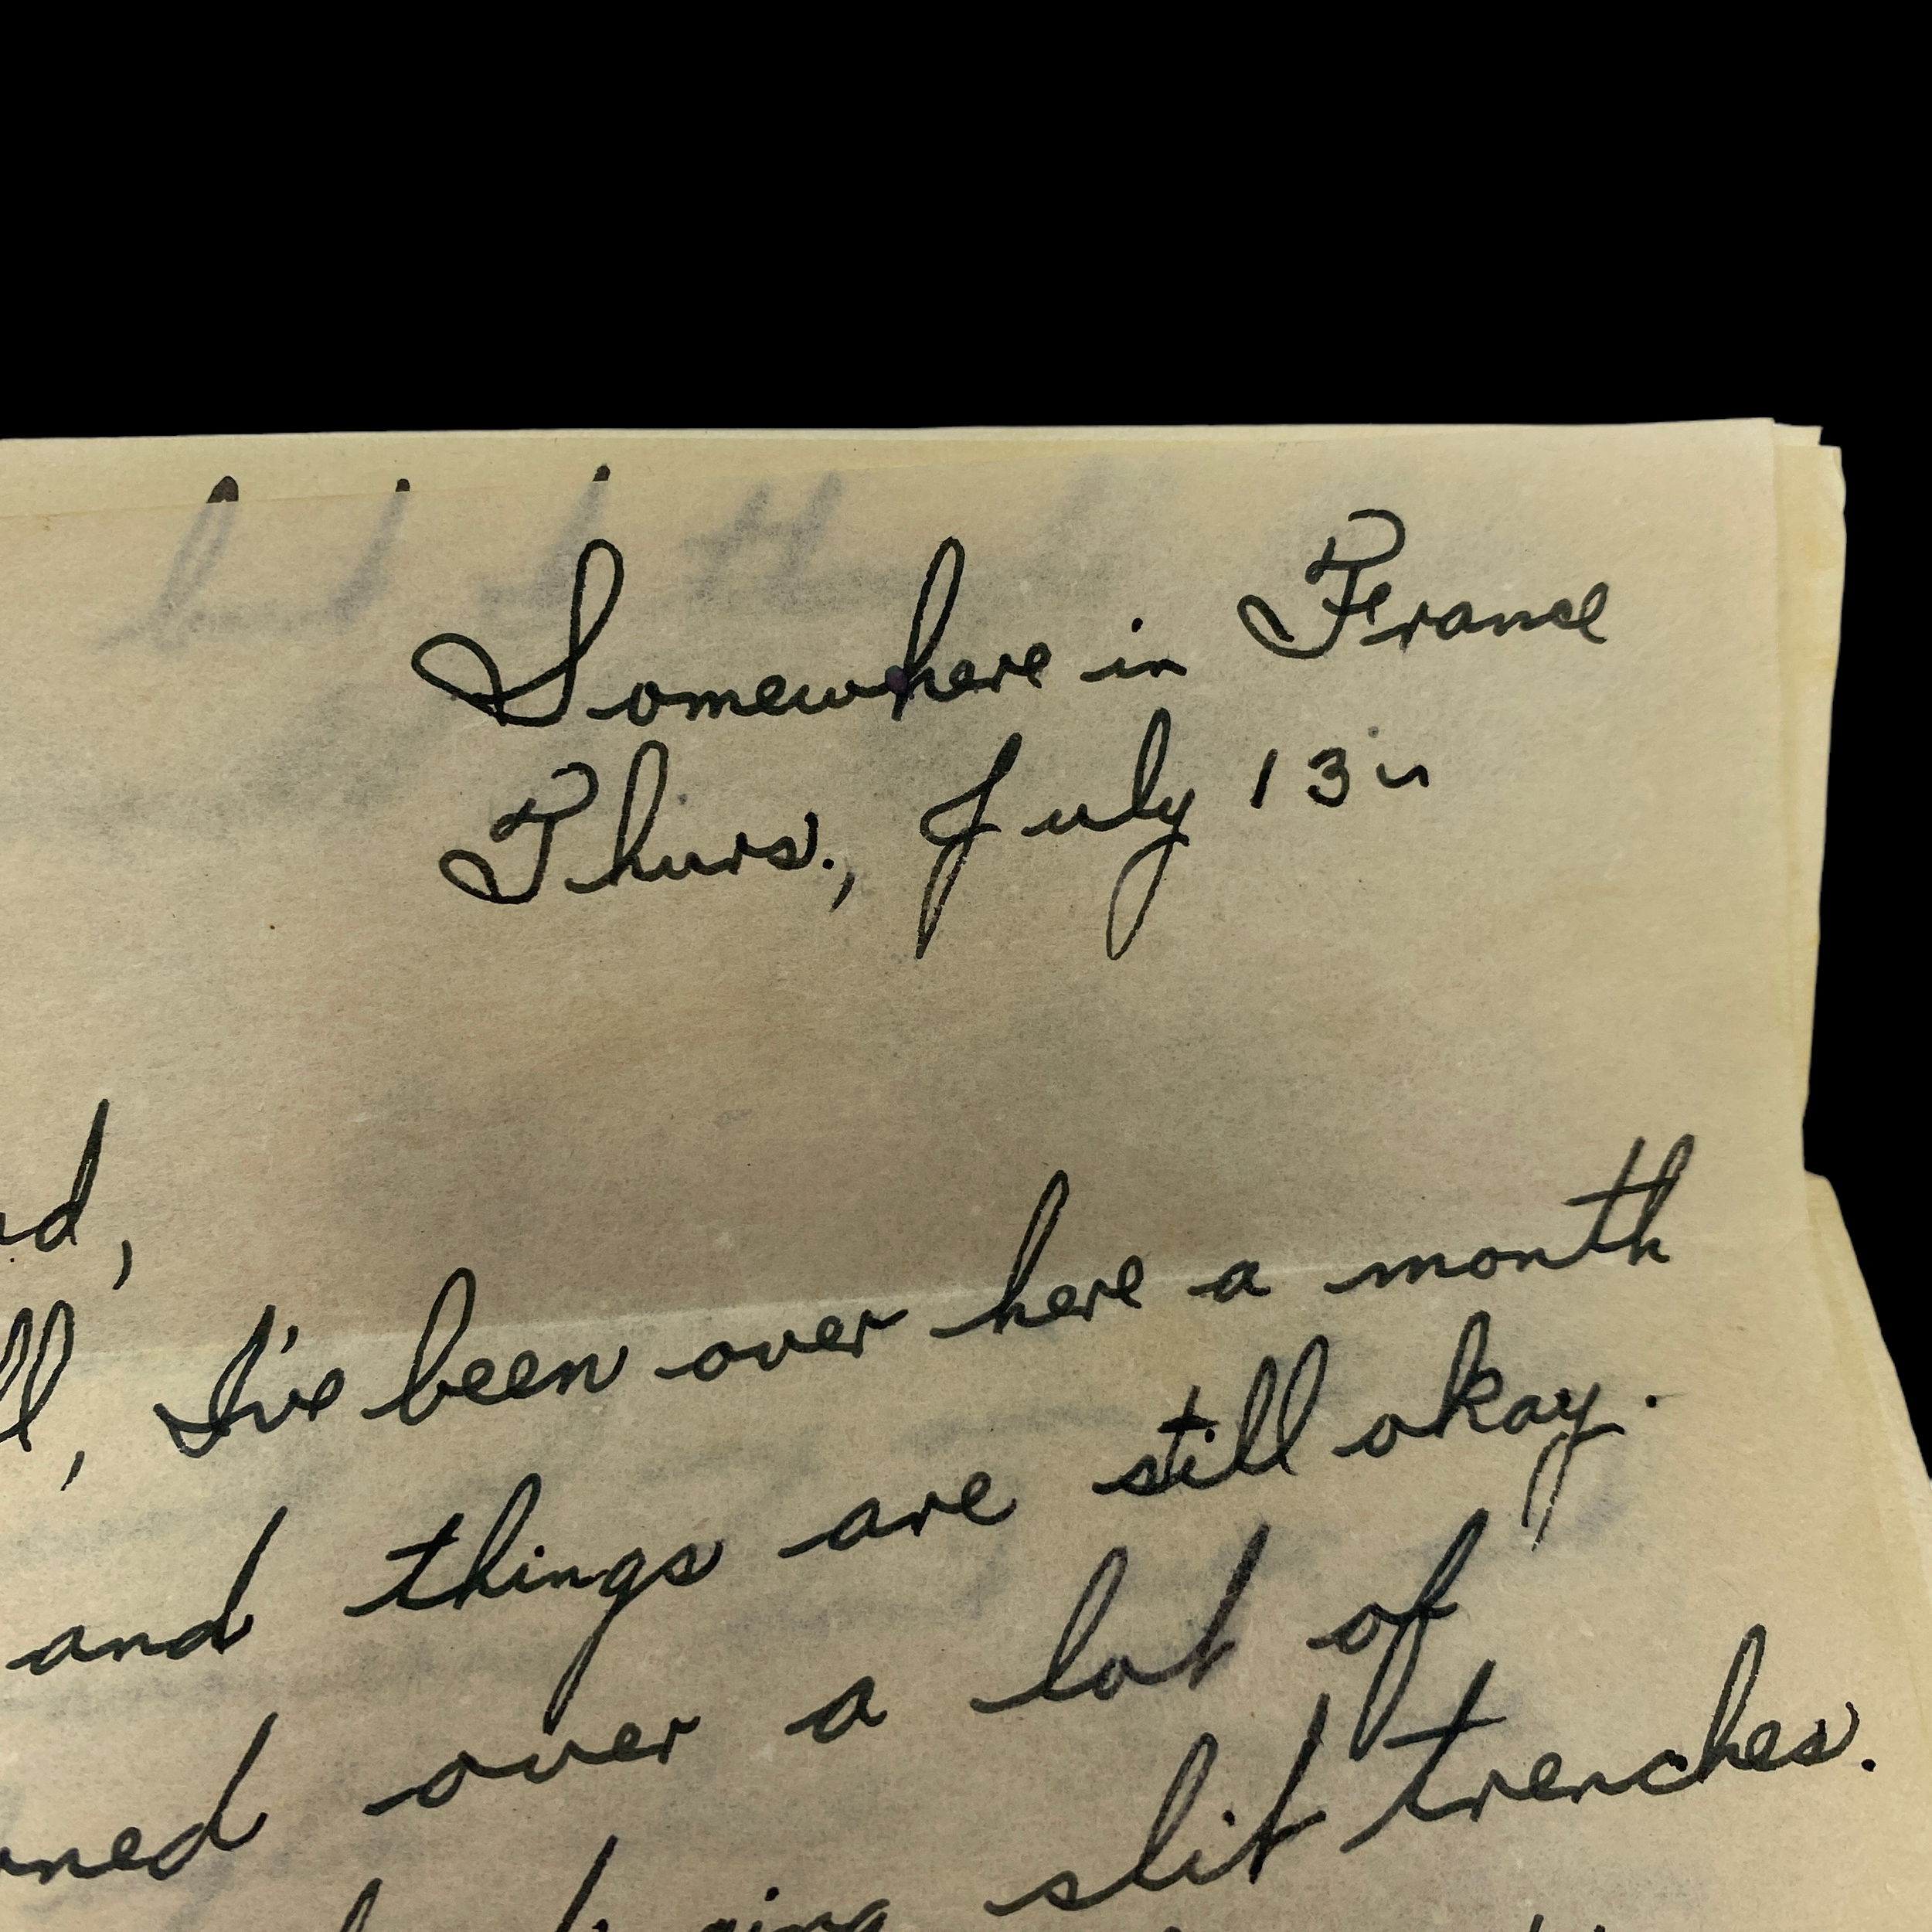 Somewhere in France
Thurs., July 13
d,
ll, I've been over here a month
and things are still okay.
ned over a lot of
slit trenches.